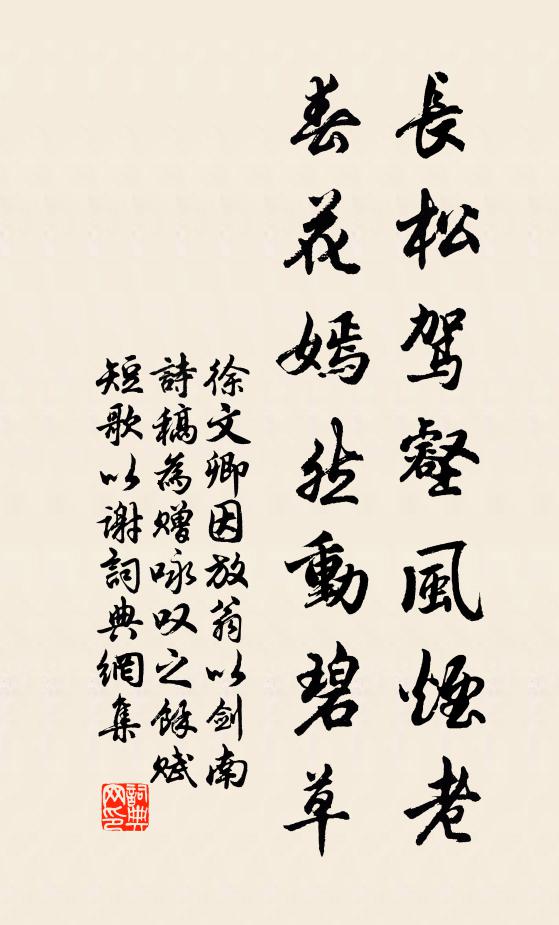 長松駕壑風煙老
春花嫣然動碧草
徐文卿因放翁以剑南
詩稿為赠咏叹之餘赋
短歌以谢詞典網集
詞典
网印